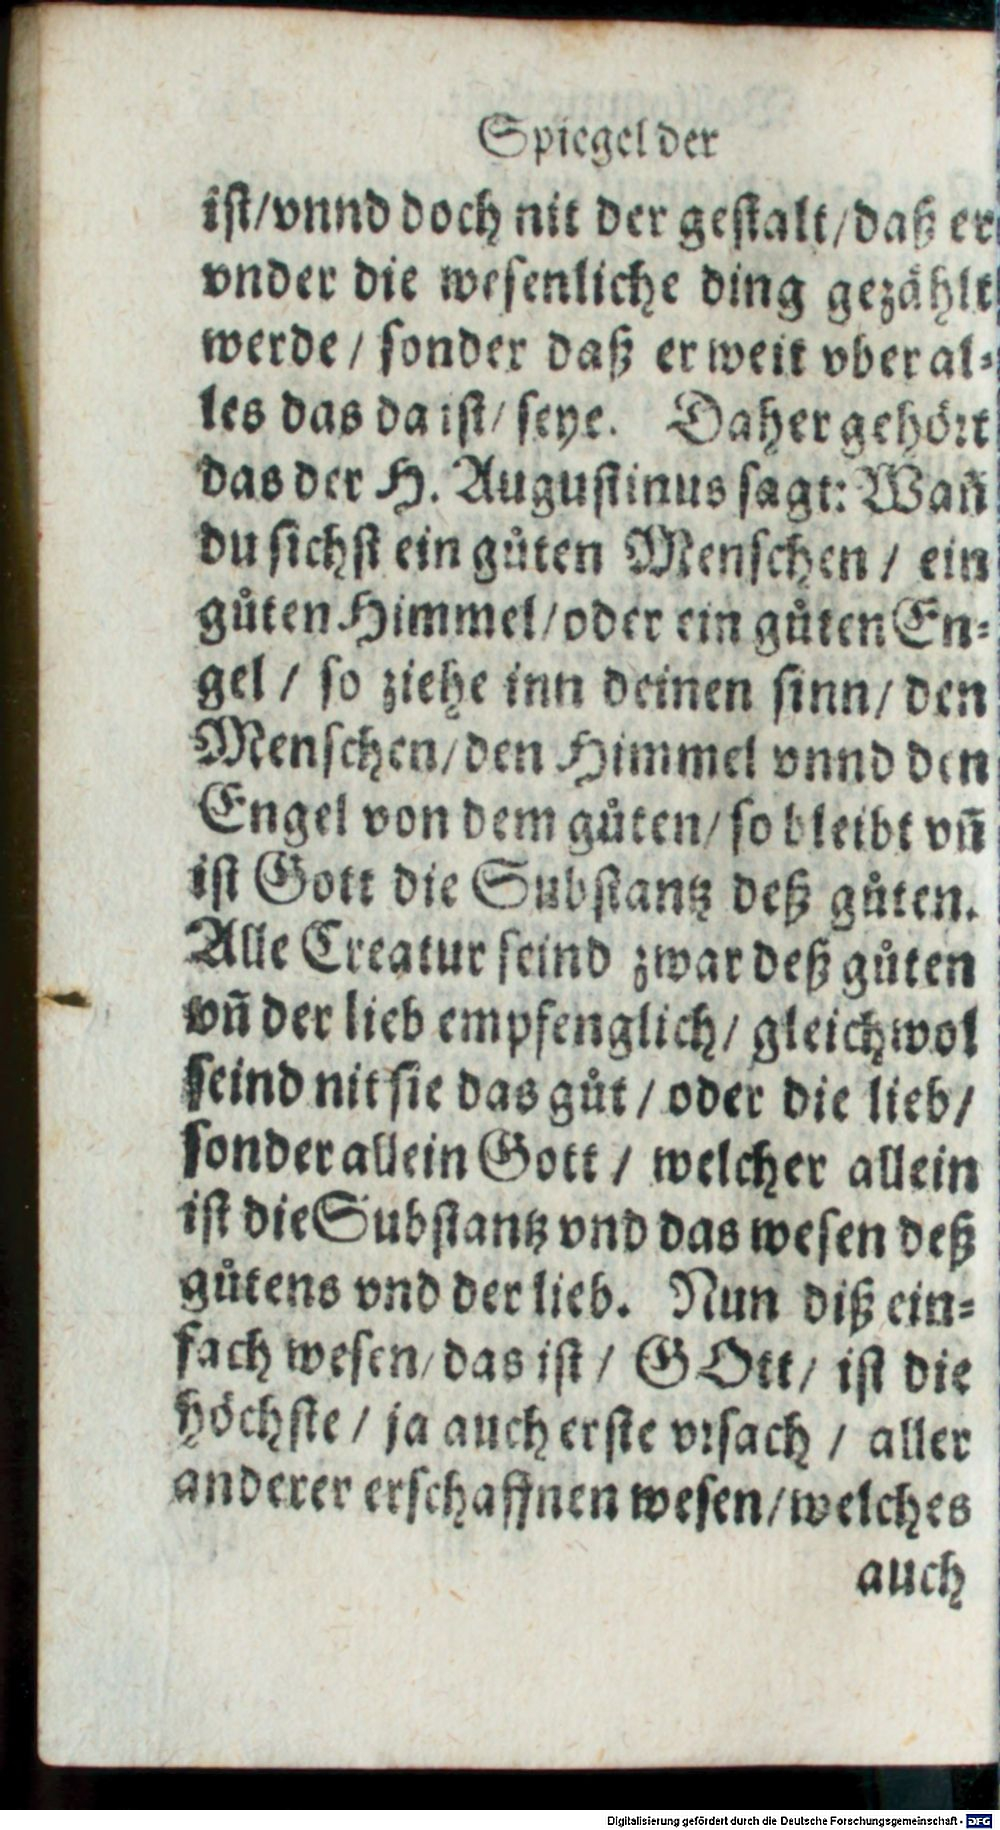 Spiegel der
ist/vnnd doch nit der gestalt/daß er
vnder die wesenliche ding gezählt
werde/ sonder daß er weit vber al-
les das da ist/ seye. Daher gehört
das der H. Augustinus sagt: Wañ
du sichst ein gůten Menschen/ ein
gůten Himmel/oder ein gůten En-
gel/ so ziehe inn deinen sinn/ den
Menschen/den Himmel vnnd den
Engel von dem gůten/ so bleibt vñ
ist Gott die Substantz deß gůten.
Alle Creatur seind zwar deß gůten
vñ der lieb empfenglich/ gleichwol
seind nit sie das gůt/ oder die lieb/
sonder allein Gott/ welcher allein
ist die Substantz vnd das wesen deß
gůtens vnd der lieb. Nun diß ein-
fach wesen/das ist/ GOtt/ ist die
höchste/ ja auch erste vrsach/ aller
anderer erschaffnen wesen/welches
auch
Digitalisierung gefördert durch die Deutsche Forschungsgemeinschaft - DFG